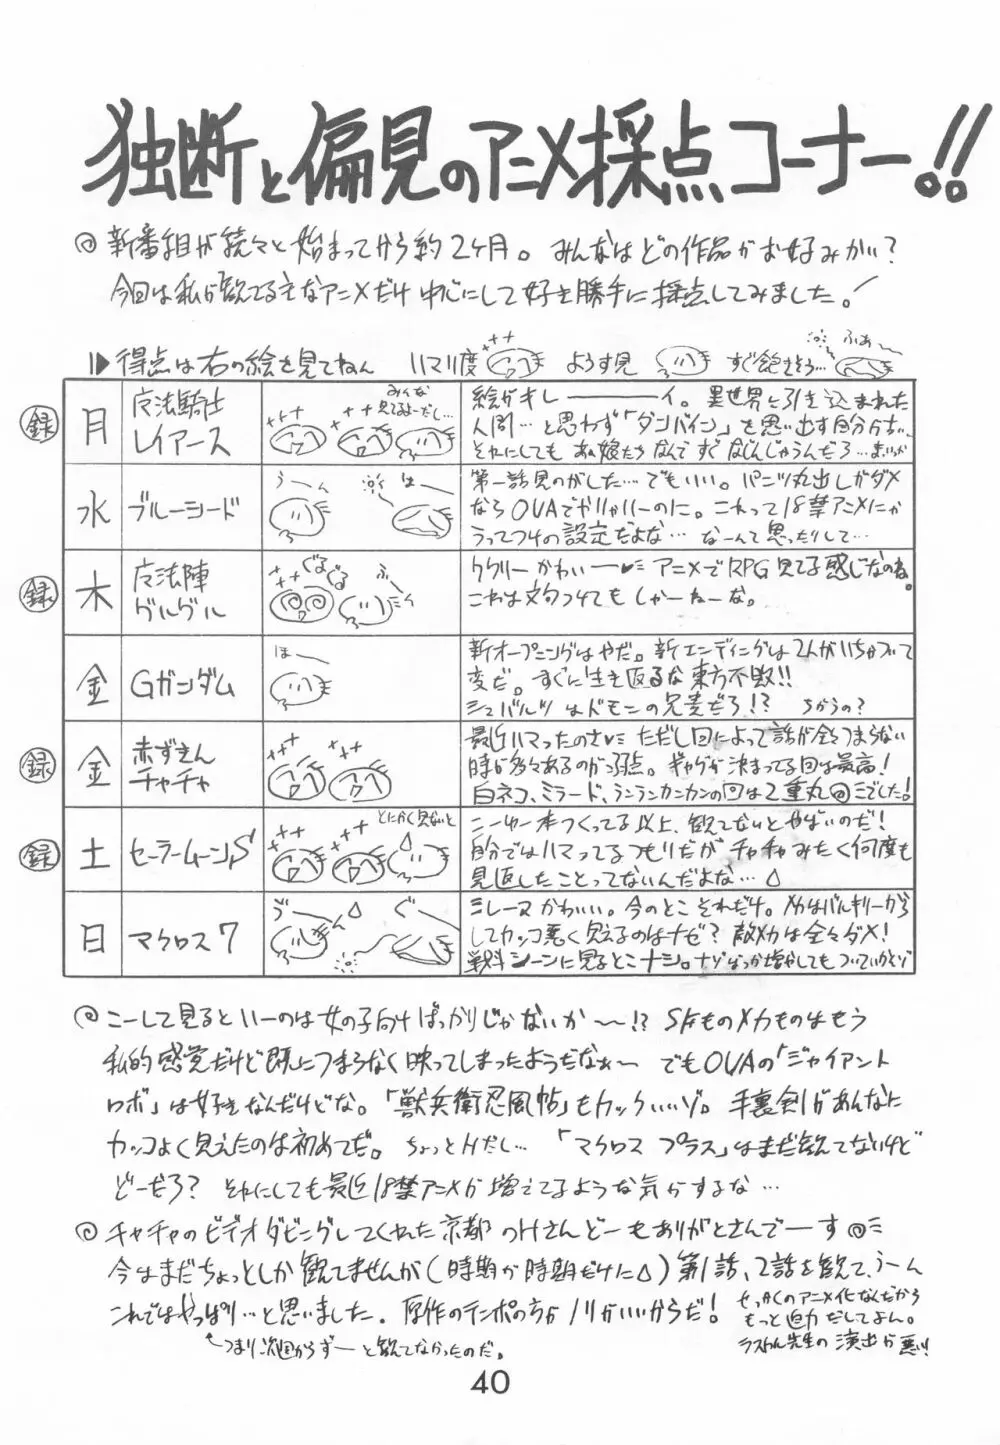 独断と偏見のアニメ採点コーナー!!
◎新番組が続々と始まってから約2ヶ月。みんなはどの作品がお好みかい?
今回は私が観てる主なアニメだけ中心にして好き勝手に採点してみました!
得点は右の絵を見てねん ハマリ度 ようす見 すぐ飽きそう… ふぁ〜
録 月 魔法騎士
レイアース
みんな
見てるよーだし…
絵がキレーーーイ。異世界に引き込まれた
人間…と思わず「ダンバイン」を思い出す自分
それにしてもあの娘たちなんですぐなじんじゃうんだろ…まいっか
水 ブルーシード
うーん はー
第一話見のがした…でもいい。パンツ丸出しがダメ
ならOVAでやりゃいーのに。これって18禁アニメにか
うってつけの設定だよな… なーんて思ったりして…
録 木 魔法陣
グルグル
ぐるぐる ふー
ククリーかわいー♥ミ アニメでRPG見てる感じなのね。
これは文句つけてもしゃーねーな。
金 Gガンダム
ほー
新オープニングはやだ。新エンディングは2人がいちゃついて
変だ。すぐに生き返るな東方不敗!!
シュバルツはドモンの兄貴だろ!? ちがうの?
録 金 赤ずきん
チャチャ
最近ハマったのさ♥ミ ただし回によって話が全々つまらない
時が多々あるのが弱点。ギャグが決まってる回は最高!
白ネコ、ミラード、ランランカンカンの回は2重丸◎ミでした!
録 土 セーラームーンS
とにかく見ないと
こーゆー本つくってる以上、観てないとやばいのだ!
自分ではハマってるつもりだがチャチャみたく何度も
見返したことってないんだよな…
日 マクロス7
ぶー ぐー
ミレーヌかわいい。今のとこそれだけ。メカはバルキリーからして
カッコ悪く見えるのはナゼ?敵メカは全々ダメ!
戦闘シーンに見るとこナシ。ナゾばっか増やしてもついていかんぞ
◎こーして見るといーのは女の子向けばっかりじゃないか〜!? SFものメカものはもう
私的感覚だけど既につまらなく映ってしまったようだなぁ〜 でもOVAの「ジャイアント
ロボ」は好きなんだけどな。「獣兵衛忍風帖」もカックいいゾ。手裏剣があんなに
カッコよく見えたのは初めてだ。ちょっとHだし…「マクロス プラス」はまだ観てないけど
どーだろ? それにしても最近18禁アニメが増えてるような気がするな…
◎チャチャのビデオダビングしてくれた京都のHさんどーもありがとさんでーす◎ミ
今はまだちょっとしか観てませんが(時期が時期だけに)第1話、2話を観て、うーん
これではやっぱり…と思いました。原作のテンポの方がノリがいいからだ!
せっかくのアニメ化なんだから
もっと迫力だしてよん。
先生の演出が悪い!
つまり次回からずーと観てなかったのだ。
40